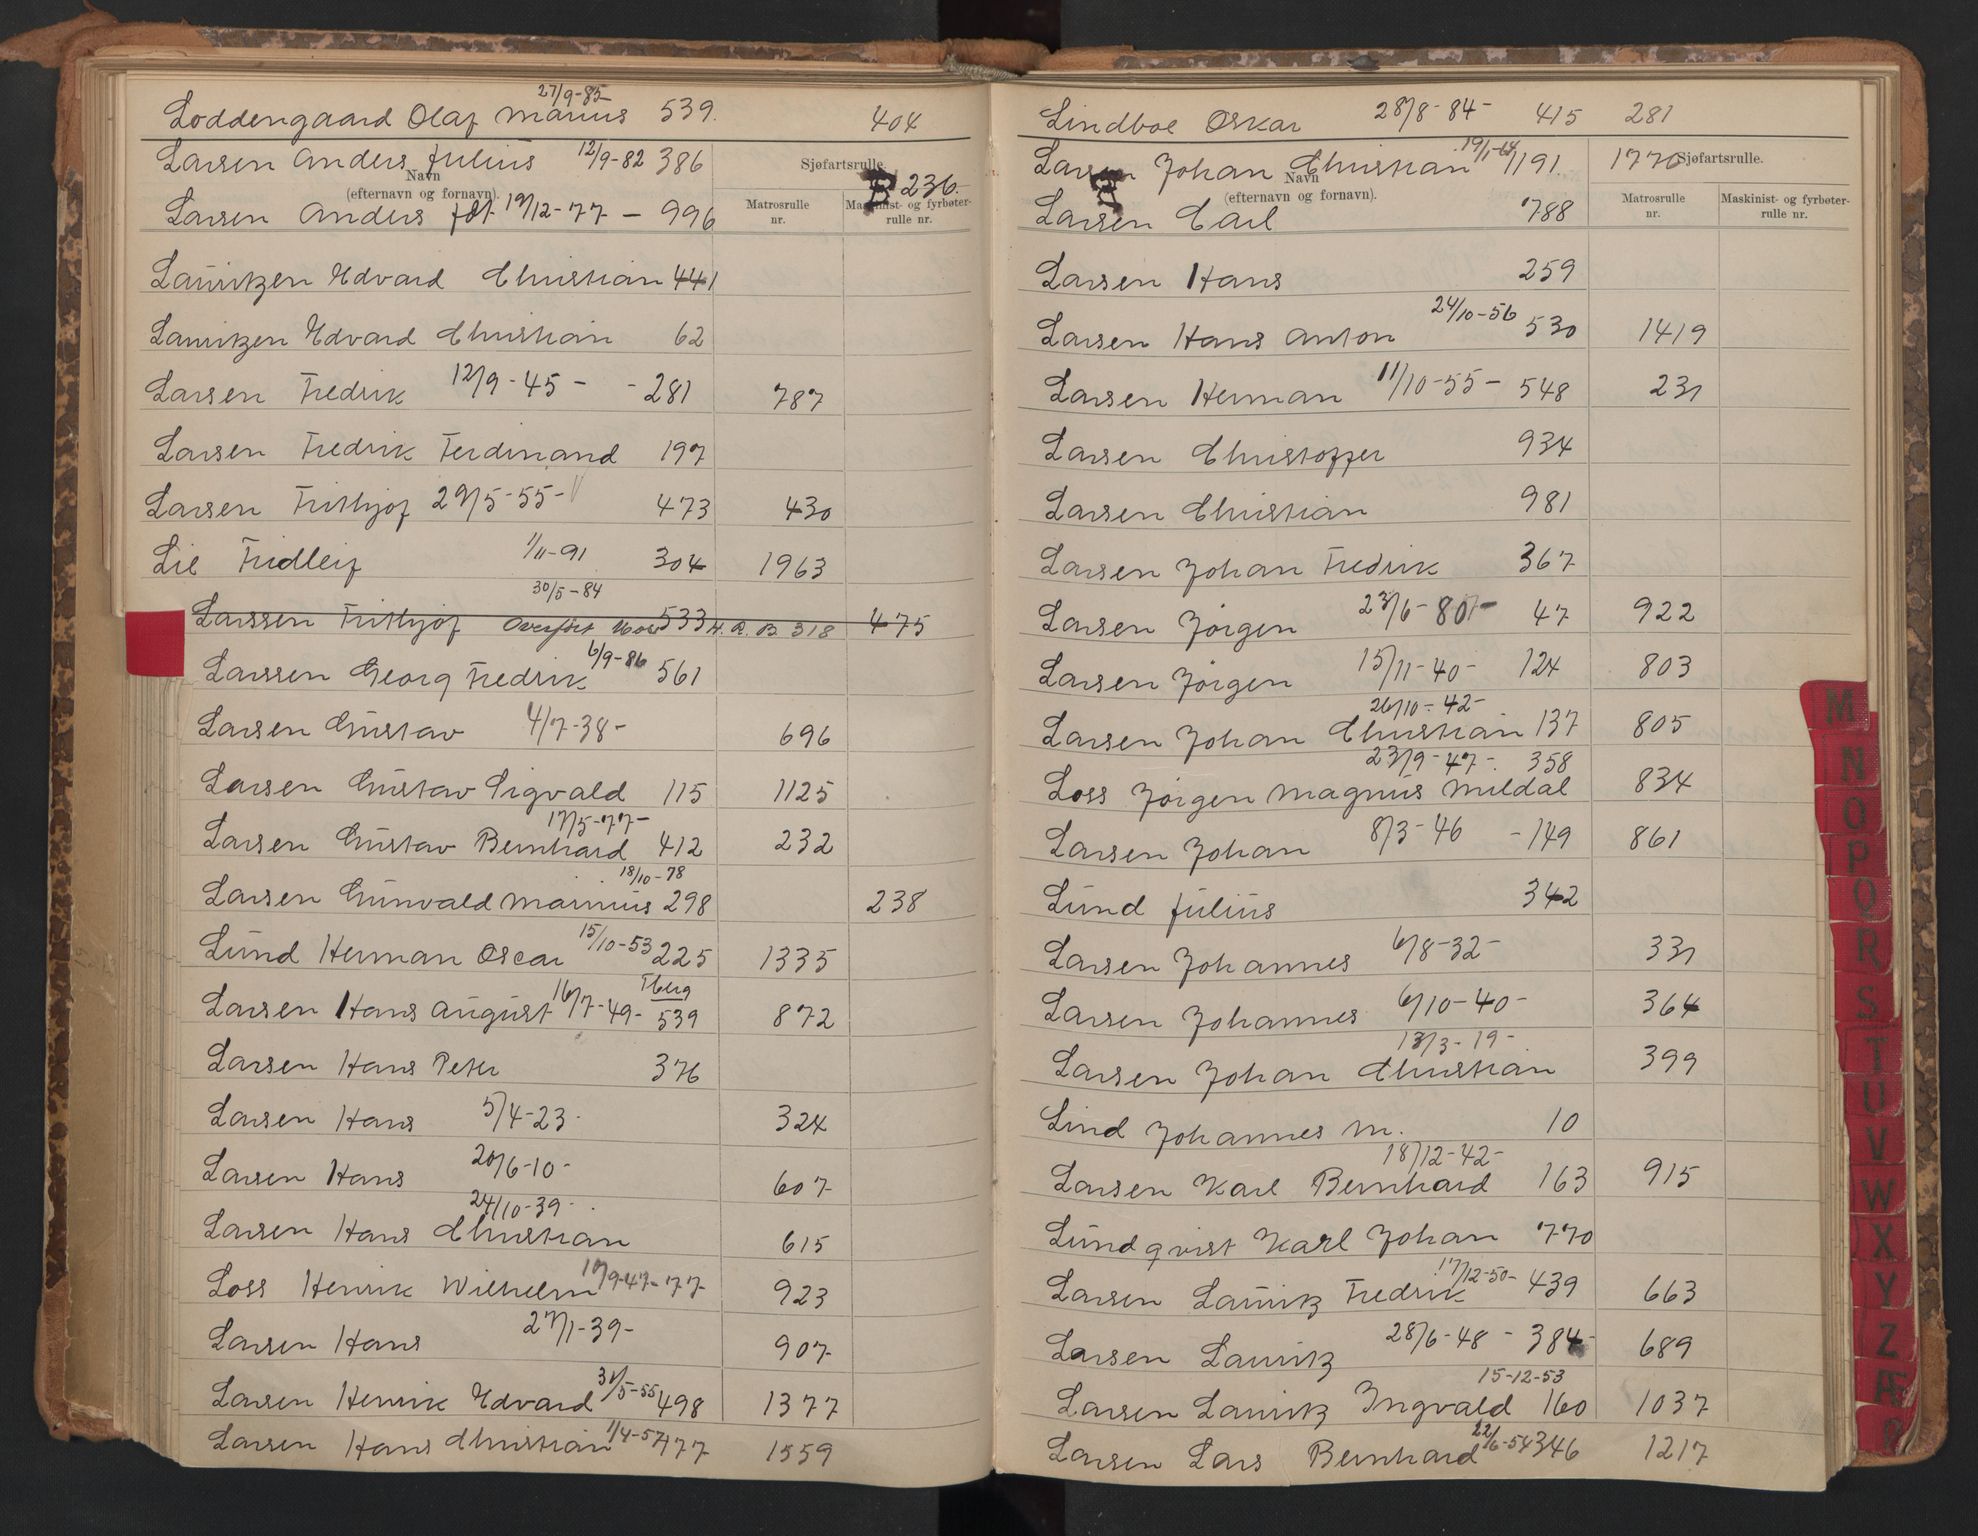 Loddengaard Olaf Marius 27/9-85 539. 404
Larsen Anders Julius 12/9-82 386
Navn
(efternavn og fornavn).
Sjøfartsrulle.
Matrosrulle
nr.
Maskinist- og fyrbøter-
rulle nr.
Larsen Anders fdt 19/12-77 - 996 236.
Lauritzen Edvard Christian 441
Lauritzen Edvard Christian 62
Larsen Fredrik 12/9-45 - - 281 787
Larsen Fredrik Ferdinand 197
Larsen Frithjof 29/5-55- 473 430
Lie Fridleif 1/11-91 304 1963
Larssen Frithjof 30/5-84 Overført Hov 533 H. R. B. 318 475
Larssen Georg Fredrik 6/9-86 561
Larsen Gustav 4/7-38- 696
Larsen Gustav Sigvald 115 1125
Larsen Gustav Bernhard 17/5-77- 412 232
Larsen Gunvald Marinius 18/10-78 298 238
Lund Herman Oscar 15/10-53 225 1335
Larsen Hans August 16/7-49- Tberg 539 872
Larsen Hans Peter 376
Larsen Hans 5/4-23- 324
Larsen Hans 20/6-10- 607
Larsen Hans Christian 24/10-39- 615
Loss Henrik Wilhelm 19/9-47- 77 923
Larsen Hans 27/1-39- 907
Larsen Henrik Edvard 31/5-55 498 1377
Larsen Hans Christian 1/4-57 477 1559
Lindboe Oskar 28/8-84- 415 281
Larsen Johan Christian 19/1-64 1191. 1770
Navn
(efternavn og fornavn).
Sjøfartsrulle.
Matrosrulle
nr.
Maskinist- og fyrbøter-
rulle nr.
Larsen Carl 788
Larsen Hans 259
Larsen Hans Anton 24/10-56 530 1419
Larsen Herman 11/10-55- 548 231
Larsen Christoffer 934
Larsen Christian 981
Larsen Johan Fredrik 367
Larsen Jørgen 23/6-80- 47 922
Larsen Jørgen 15/11-40- 124 803
Larsen Johan Christian 26/10-42- 137 805
Loss Jørgen Magnus Mildal 23/9-47-. 358 834
Larsen Johan 8/3-46 -149 861
Lund Julius 342
Larsen Johannes 6/8-32- 331
Larsen Johannes 6/10-40- 364
Larsen Johan Christian 13/3-19- 399
Lind Johannes M. 10
Larsen Karl Bernhard 18/12-42- 163 915
Lundqvist Karl Johan 770
Larsen Lauritz Fredrik 17/12-50- 439 663
Larsen Lauritz 28/6-48 - 384- 689
Larsen Lauritz Ingvald 15-12-53 160 1037
Larsen Lars Bernhard 22/6-54 346 1217
M
N
O
P
Q
R
S
T
U
V
W
X
Y
Z
Æ
Ø